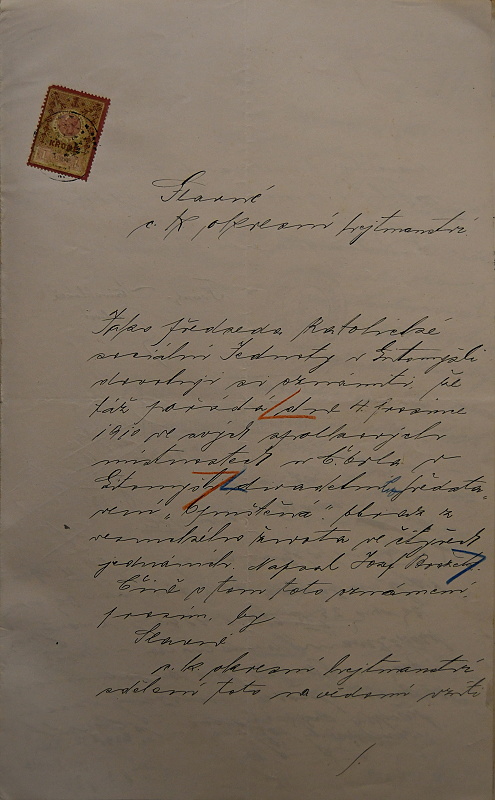 1
KRONE
Slavné
c. k. okresní hejtmanství
Jako předseda Katolické
sociální Jednoty v Litomyšli
dovoluji si oznámiti, že
táž pořádá dne 4. prosince
1910 ve svých spolkových
místnostech u Orla v
Litomyšli divadelní předsta-
vení „Opuštěná“. Obraz z
venkovského života ve čtyřech
jednáních. Napsal Josef
Čině o tom toto oznámení,
prosím, by
Slavné
c. k. okresní hejtmanství
sdělení toto na vědomí vzíti